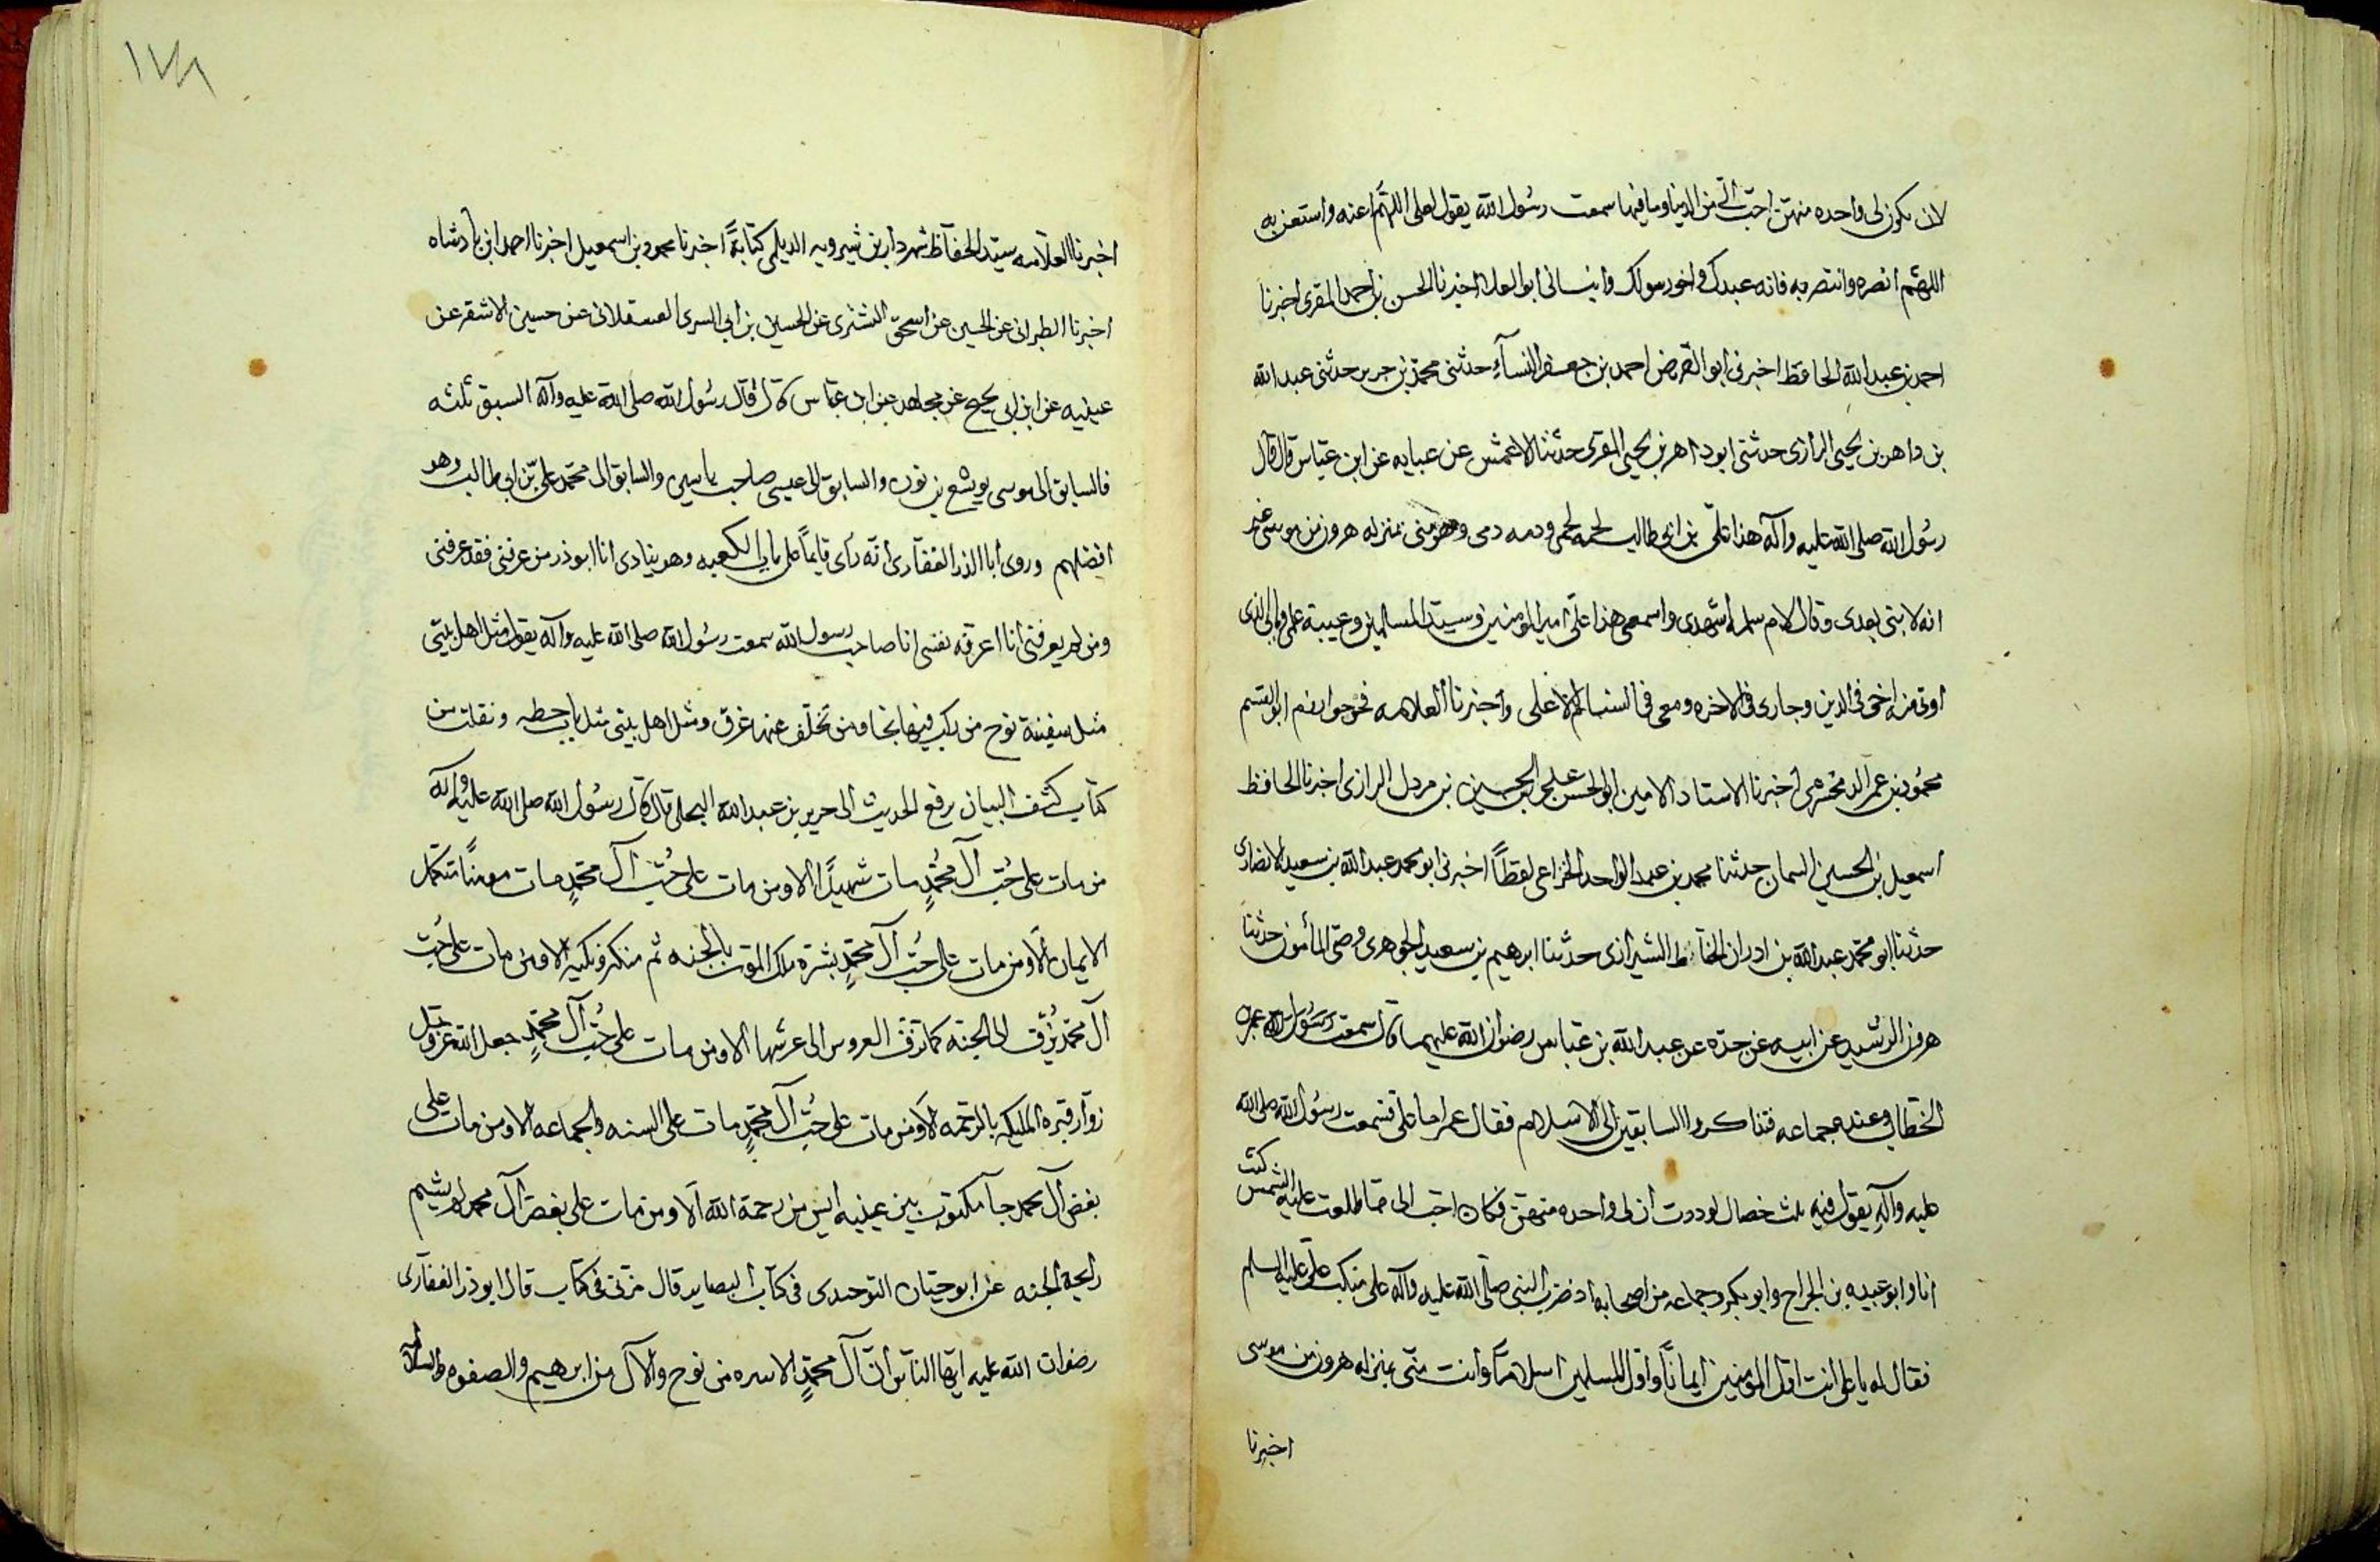 لان يكون لى واحده منهن احب الىّ من الدنيا وما فيها سمعت رسول الله يقول لعلى اللهم اعنه واستعن به
اللهم انصره وانتصر به فانه عبدك واخو رسولك وانبانى ابو العلا اخبرنا الحسن بن احمد المقرى اخبرنا
احمد بن عبد الله الحافظ اخبرنى ابو الفرض احمد بن جعفر النسآء حدثنى محمد بن جرير حدثنى عبد الله
بن داهر بن يحيى الرازى حدثنى ابو داهر بن يحيى المقرى حدثنا الاعمش عن عبايه عن ابن عباس قال قال
رسول الله صلى الله عليه وآله هذا علىّ بن ابى طالب لحمه لحمى ودمه دمى وهو منى بمنزله هرون من موسى غير
انه لا نبى بعدى وقال لام سلمه اشهدى واسمعى هذا علىّ امير المومنين وسيد المسلمين وعيبة علمى وبابى الذى
اوتى منه اخى فى الدين وجارى فى الاخره ومعى فى السنام الاعلى واخبرنا العلامه فخر خوارزم ابو القسم
محمود بن عمر الزمخشرى اخبرنا الاستاد الامين ابو الحسن على بن الحسين بن مردك الرازى اخبرنا الحافظ
اسمعيل بن الحسين السمان حدثنا محمد بن عبد الواحد الخزاعى لفظاً اخبرنى ابو محمد عبد الله بن سعيد الانصارى
حدثنا ابو محمد عبد الله بن ادران الخياط الشيرازى حدثنا ابرهيم بن سعيد الجوهرى وصى المأمون حدثنا
هرون الرشيد عن ابيه عن جده عن عبد الله بن عباس رضوان الله عليهما قال سمعت عمر بن
الخطاب وعنده جماعه فتذاكروا السابقين الى الاسلام فقال عمر اما على فسمعت رسول الله صلى الله
عليه وآله يقول فيه ثلث خصال لوددت ان لى واحده منهن فكان احب الى مما طلعت عليه الشمس كنت
انا وابو عبيده بن الجراح وابو بكر وجماعه من اصحابه اذ ضرب النبى صلى الله عليه وآله على منكب علىّ عليه السلم
فقال له يا على انت اول المومنين ايماناً واول المسلمين اسلاماً وانت منّى بمنزله هرون من موسى
اخبرنا
١٧٨
اخبرنا العلامه سيد الحفاظ شهردار بن شيرويه الديلمى كتابةً اخبرنا محمود بن اسمعيل اخبرنا احمد ابن بادشاه
اخبرنا الطبرانى عن الحسين عن اسحق التشترى عن الحسين بن ابى السرى العسقلانى عن حسين الاشقر عن
عيينه عن ابن ابى نجيح عن مجاهد عن ابن عباس قال قال رسول الله صلى الله عليه وآله السبق ثلثه
فالسابق الى موسى يوشع بن نون والسابق الى عيسى صاحب ياسين والسابق الى محمد علىّ بن ابى طالب وهو
افضلهم وروى ابا الذر الغفارى انّه رأى قايماً على باب الكعبه وهو ينادى انا ابو ذر من عرفنى فقد عرفنى
ومن لم يعرفنى انا اعرفه نفسى انا صاحب رسول الله سمعت رسول الله صلى الله عليه وآله يقول مثل اهل بيتى
مثل سفينة نوح من ركب فيها نجا ومن تخلّف عنها غرق ومثل اهل بيتى مثل باب حطه ونقلت من
كتاب كشف البيان يرفع الحديث الى جرير بن عبد الله البجلى قال قال رسول الله صلى الله عليه وآله
من مات على حُبّ آل محمدٍ مات شهيداً الا ومن مات على حُبّ آل محمدٍ مات مومناً مستكمل
الايمان الا ومن مات على حُبّ آل محمدٍ بشره ملك الموت بالجنه ثم منكر ونكير الا ومن مات على حُبّ
آل محمد يُزفّ الى الجنه كما تزف العروس الى عرشها الا ومن مات على حُبّ آل محمدٍ جعل الله عز وجل
زوار قبره المليكه بالرحمه الا ومن مات على حُبّ آل محمدٍ مات على السنه والجماعه الا ومن مات على
بغض آل محمد جآ مكتوب بين عينيه ايس من رحمة الله الا ومن مات على بغض آل محمد لم يشم
رايحة الجنه عن ابو حيان التوحيدى فى كتاب البصاير قال مرّ بى فى كتاب قال ابو ذر الغفارى
رضوان الله عليه ايها الناس انّ آل محمدٍ الاسره من نوح والآل من ابرهيم والصفوه والسلاله